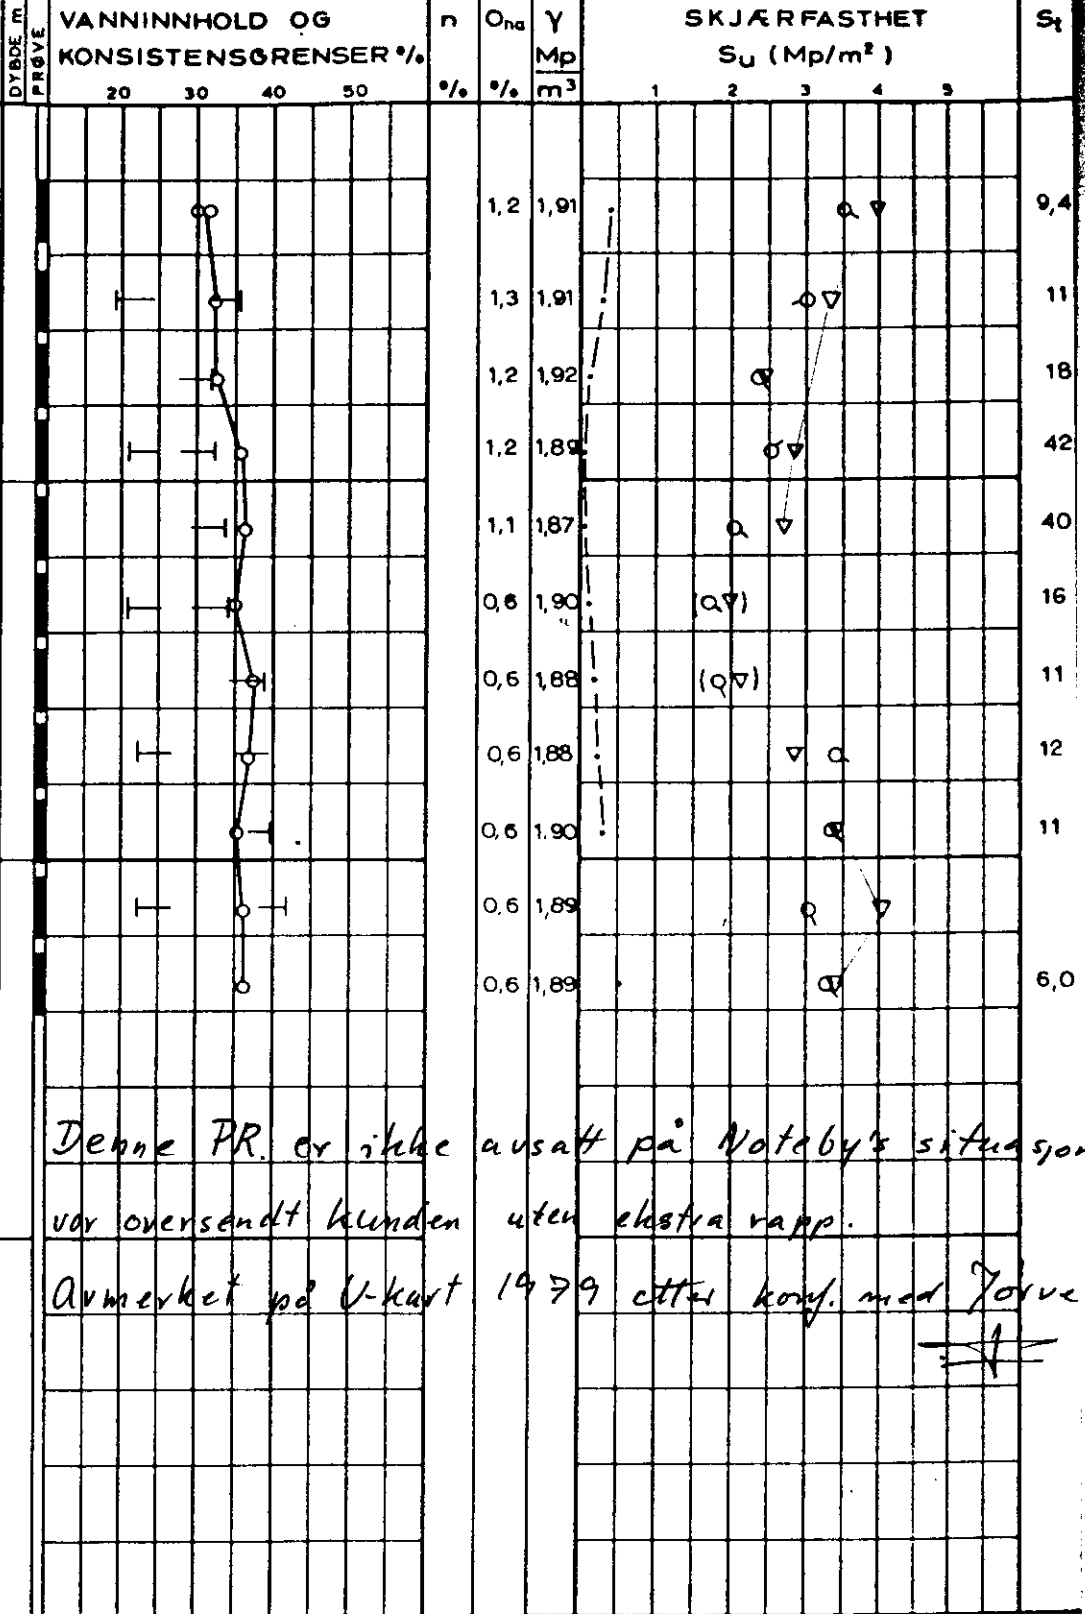 DYBDE m
PRØVE
VANNINNHOLD OG
KONSISTENSGRENSER %
20 30 40 50
n
%
Ona
%
γ
Mp
m³
SKJÆRFASTHET
Su (Mp/m²)
1 2 3 4 5
St
1,2 1,91 9,4
1,3 1,91 11
1,2 1,92 18
1,2 1,89 42
1,1 1,87 40
0,6 1,90 ( ) 16
0,6 1,88 ( ) 11
0,6 1,88 12
0,6 1.90 11
0,6 1,89
0,6 1,89 6,0
Denne PR. er ikke avsatt på Noteby's situasjon
var oversendt kunden uten ekstra rapp.
Avmerket på U-kart 1979 etter konf. med